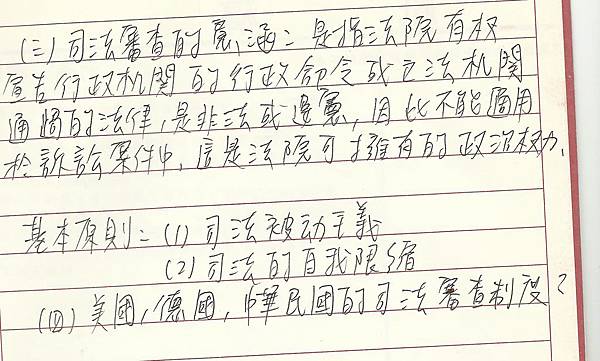 (三)司法審查的意涵:是指法院有权
宣告行政机関的行政命令或立法机関
通過的法律,是非法或違憲,因此不能適用
於訴訟案件中,這是法院可擁有的政治权力,
基本原則:(1)司法被动主義
(2)司法的自我限缩
(四)美國,德國,中華民國的司法審查制度?